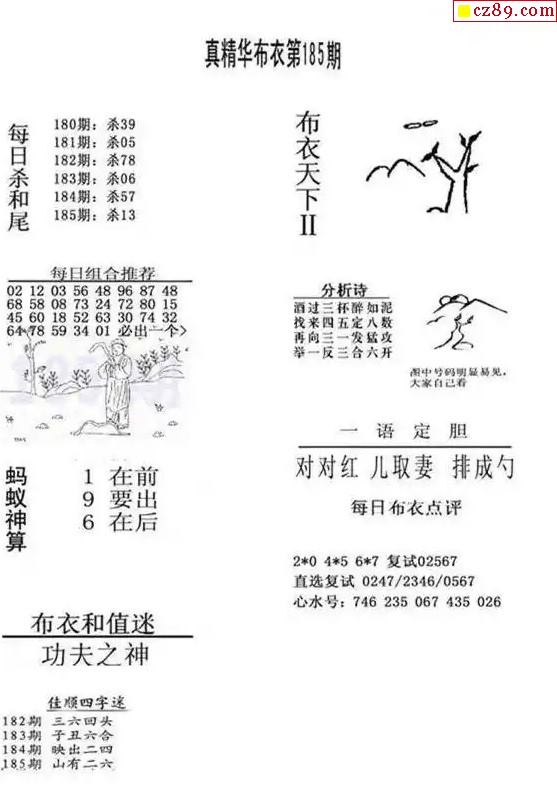 cz89.com
真精华布衣第185期
每日杀和尾
180期：杀39
181期：杀05
182期：杀78
183期：杀06
184期：杀57
185期：杀13
布衣天下II
每日组合推荐
02 12 03 56 48 96 87 48
68 58 08 73 24 72 80 15
45 60 18 52 63 30 74 32
64 78 59 34 01 必出一个>
分析诗
酒过三杯醉如泥
找来四五定八数
再向三一发猛攻
举一反三合六开
图中号码明显易见，
大家自己看
蚂蚁神算
1 在前
9 要出
6 在后
一语定胆
对对红 儿取妻 排成勺
每日布衣点评
2*0 4*5 6*7 复试02567
直选复试 0247/2346/0567
心水号：746 235 067 435 026
布衣和值迷
功夫之神
佳顺四字迷
182期 三六回头
183期 子丑六合
184期 映出二四
185期 山有二六